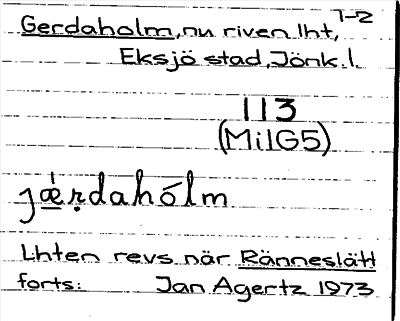 1-2
Gerdaholm, nu riven lht,
Eksjö stad, Jönk. l.
113
(MilG5)
jǽṛdahólm
Lhten revs när Ränneslätt
forts: Jan Agertz 1973